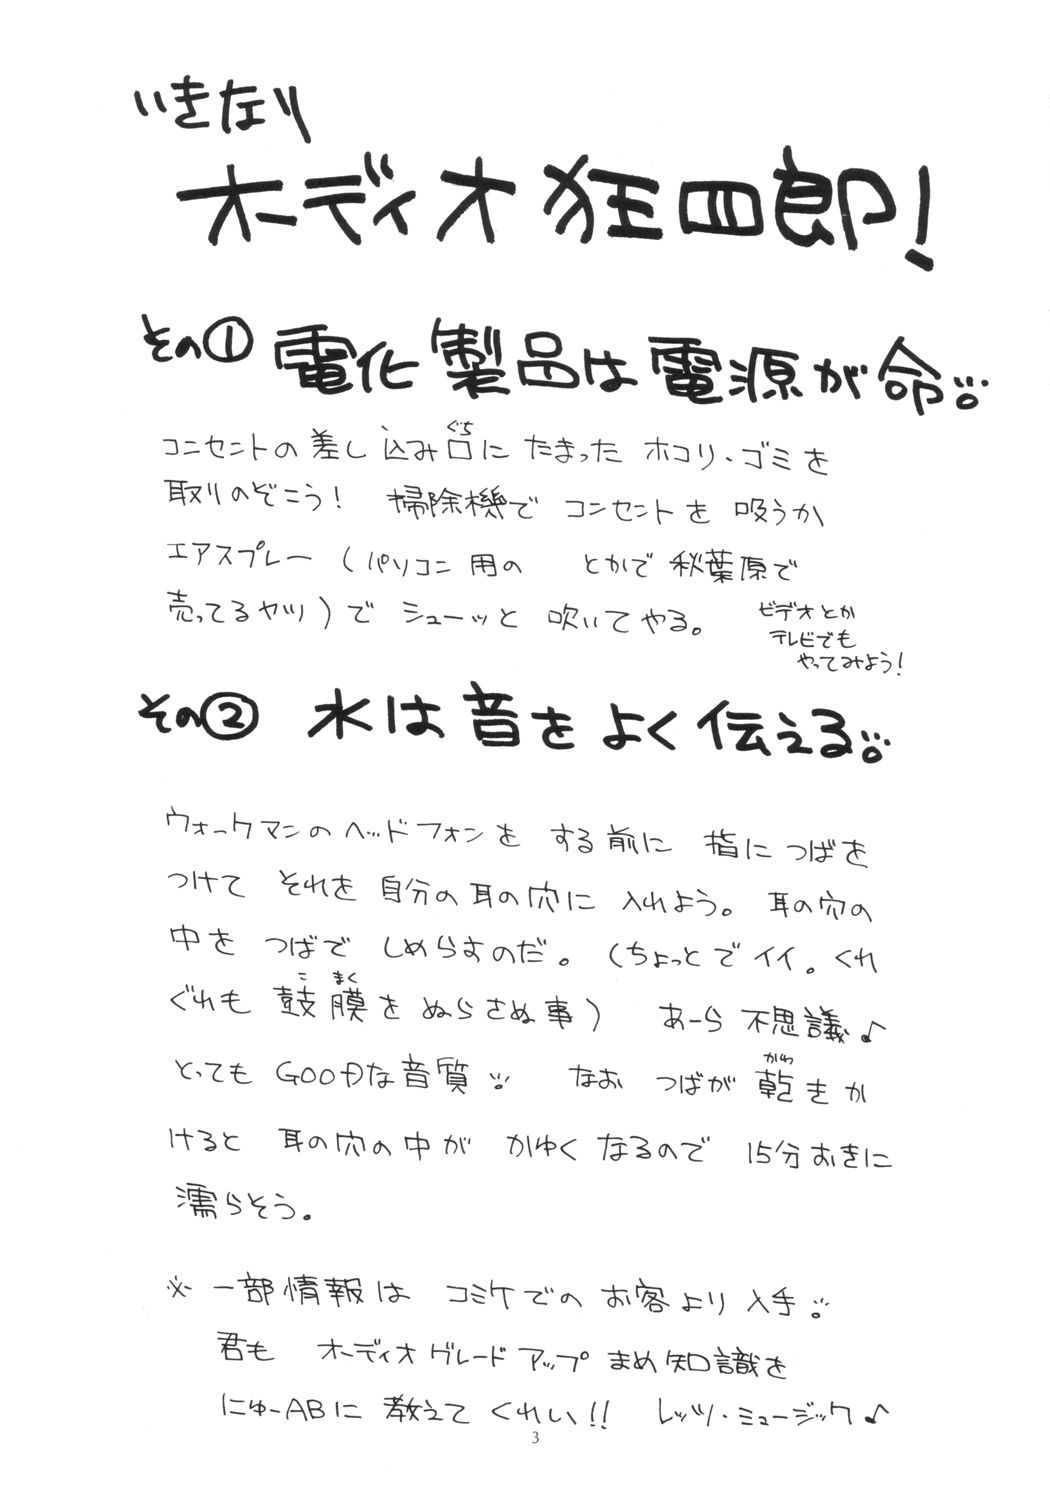 いきなり
オーディオ狂四郎!
その① 電化製品は電源が命。
コンセントの差し込み口にたまった ホコリ・ゴミを
ぐち
取りのぞこう! 掃除機で コンセントを 吸うか
エアスプレー (パソコン用の とかで 秋葉原で
売ってるヤツ)で シューッと 吹いてやる。
ビデオとか
テレビでも
やってみよう!
その② 水は音をよく伝える。
ウォークマンのヘッドフォンを する前に 指につばを
つけて それを 自分の耳の穴に 入れよう。 耳の穴の
中を つばで しめらすのだ。 (ちょっとでイイ。くれ
ぐれも 鼓膜を ぬらさぬ事) あーら 不思議♪
こ まく
とっても GOODな音質。 なお つばが 乾きか
かわ
けると 耳の穴の中が かゆくなるので 15分おきに
濡らそう。
※ 一部情報は コミケでの お客より 入手。
君も オーディオグレードアップ まめ知識を
にゅーABに 教えてくれい!! レッツ・ミュージック♪
3